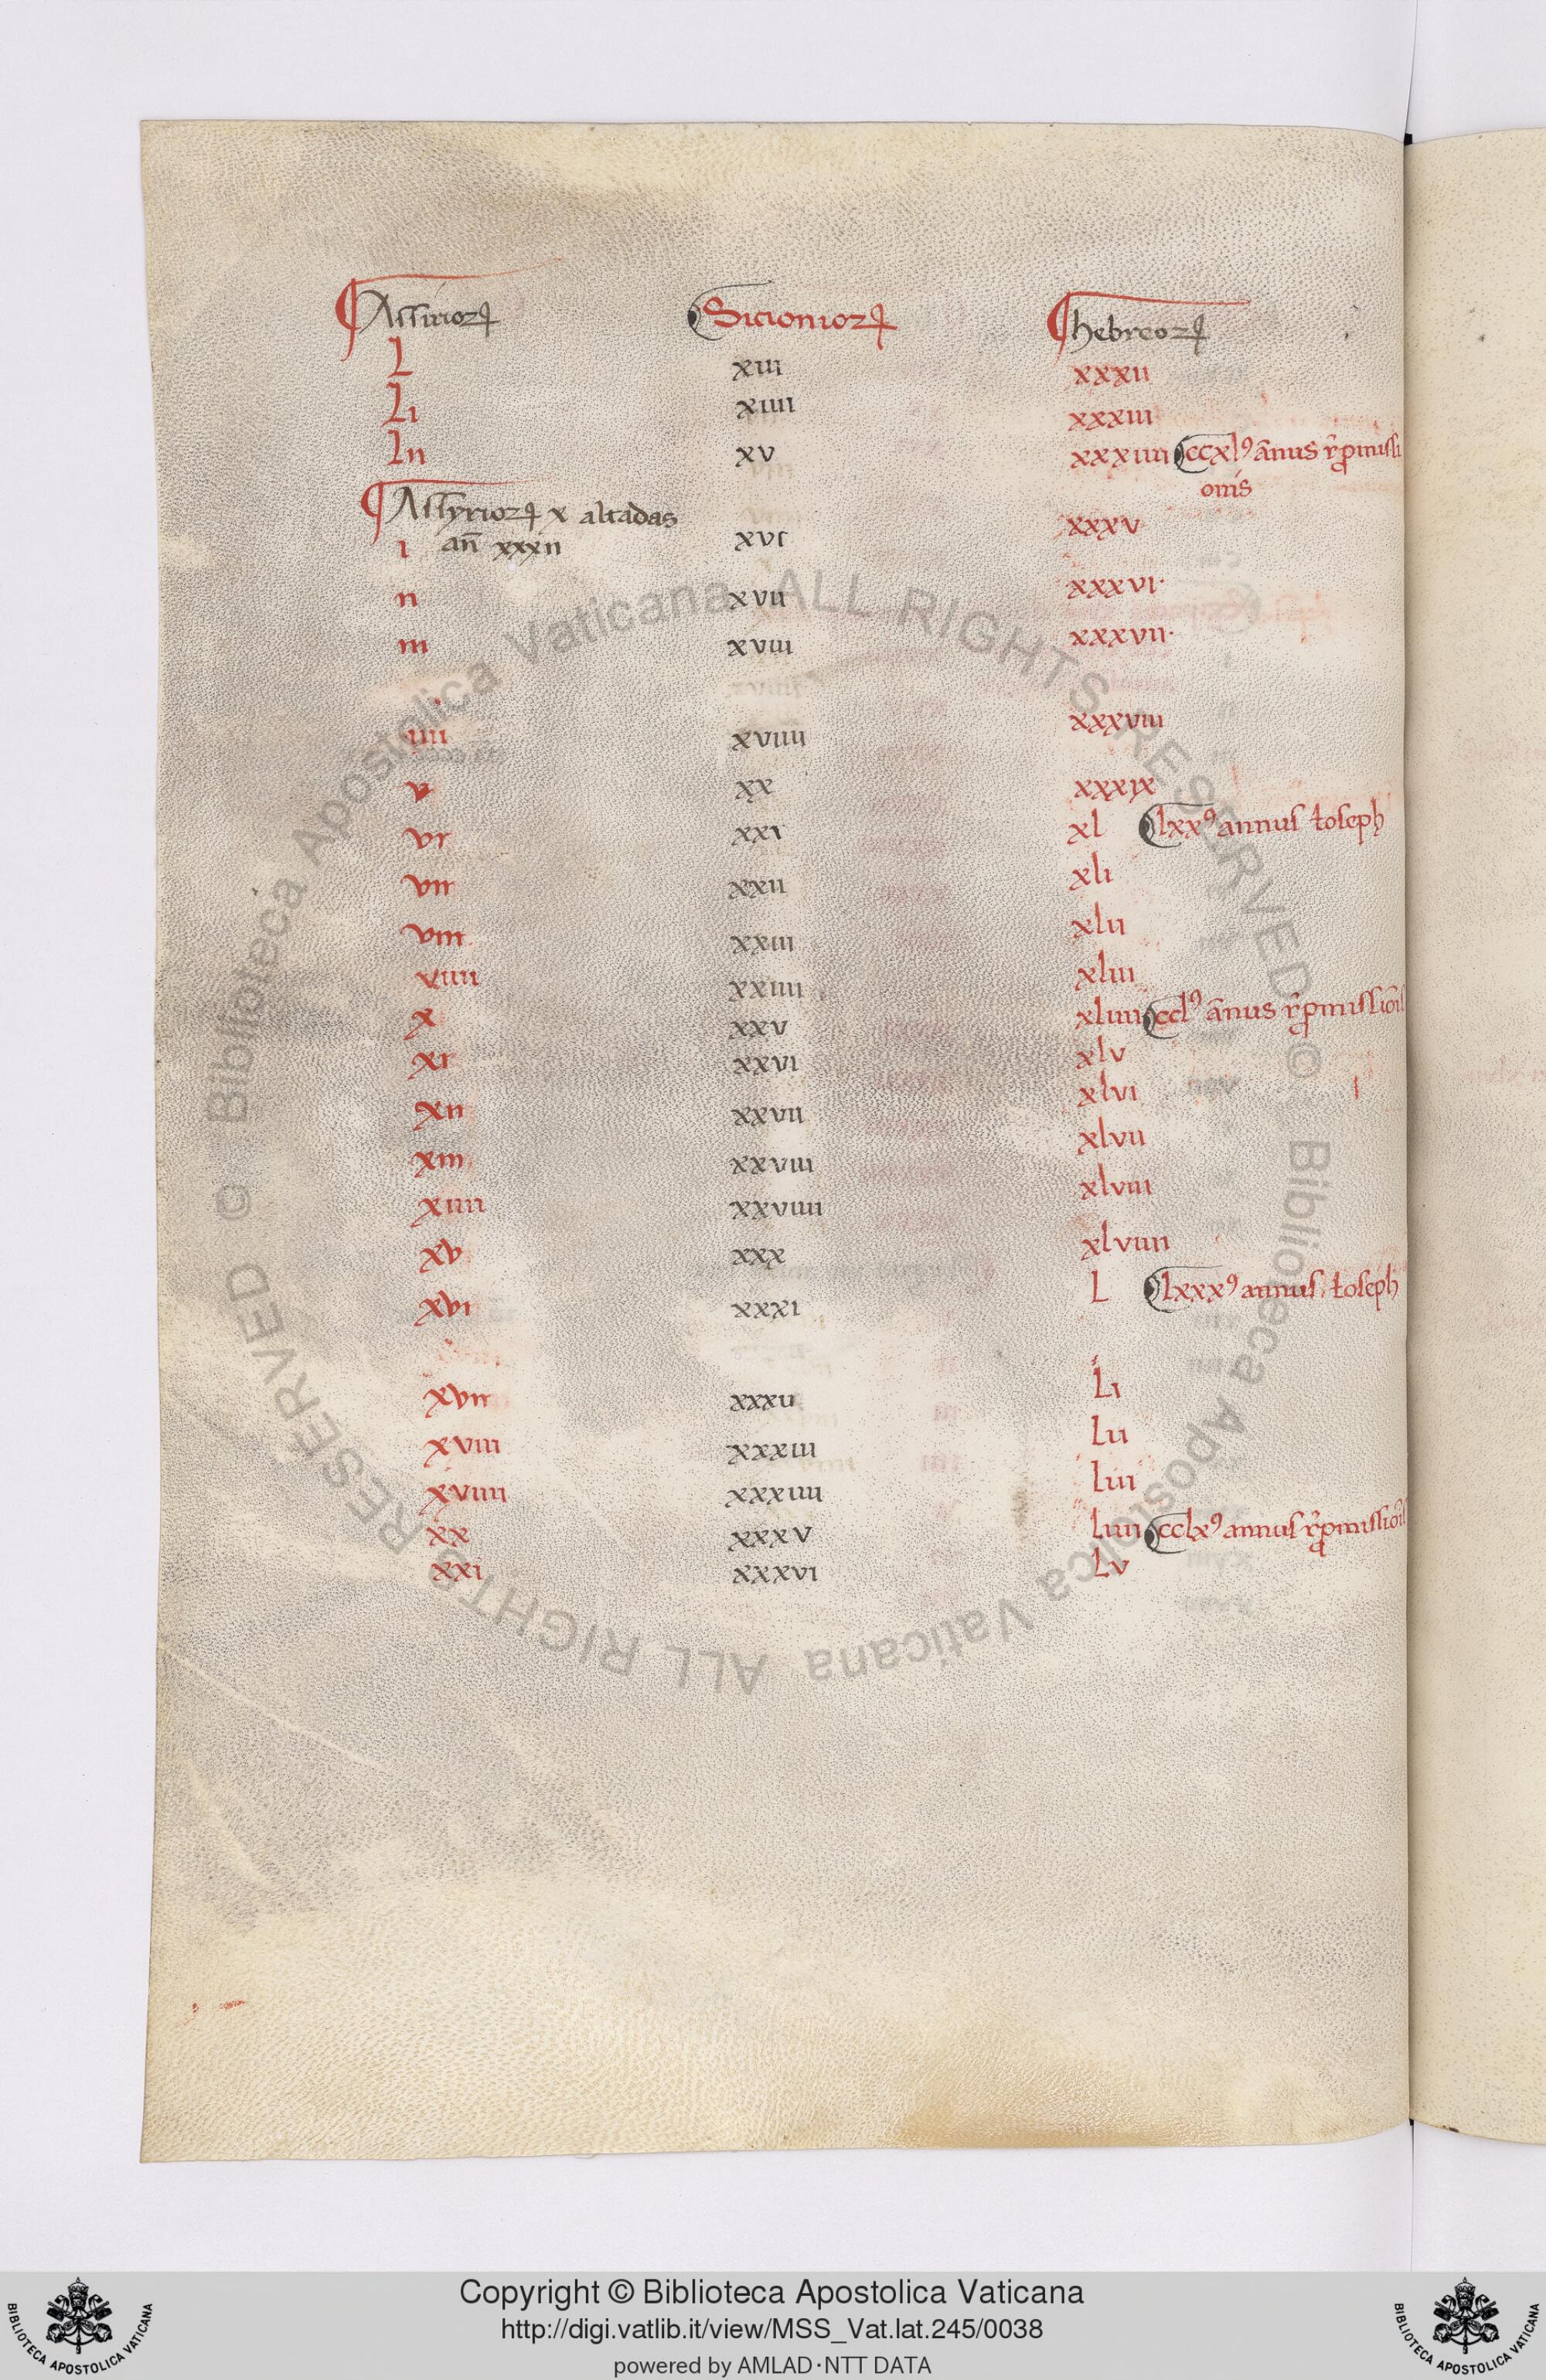 Assirioꝝ Sicionioꝝ hebreoꝝ
L xiii xxxii
Li xiiii xxxiii
Lii xv xxxiiii ccxlꝰ ānus r̄ꝓmissi
onis
Assyrioꝝ x altadas xxxv
i an̄ xxxii xvi
ii xvii xxxvi·
iii xviii xxxvii·
iiii xviiii xxxviii
v xx xxxix
vi xxi xl lxxꝰ annus Ioseph
vii xxii xli
viii xxiii xlii
viiii xxiiii xliii
x xxv xliiii cclꝰ ānus r̄ꝓmissiōis
xi xxvi xlv
xii xxvii xlvi
xiii xxviii xlvii
xiiii xxviiii xlviii
xv xxx xlviiii
xvi xxxi L lxxxꝰ annus Ioseph
xvii xxxii Li
xviii xxxiii Lii
xviiii xxxiiii Liii
xx xxxv Liiii cclxꝰ annus r̄ꝓmissiōis
xxi xxxvi Lv
© Biblioteca Apostolica Vaticana ALL RIGHTS RESERVED © Biblioteca Apostolica Vaticana ALL RIGHTS RESERVED
BIBLIOTECA APOSTOLICA VATICANA
Copyright © Biblioteca Apostolica Vaticana
http://digi.vatlib.it/view/MSS_Vat.lat.245/0038
powered by AMLAD·NTT DATA
BIBLIOTECA APOSTOLICA VATICANA